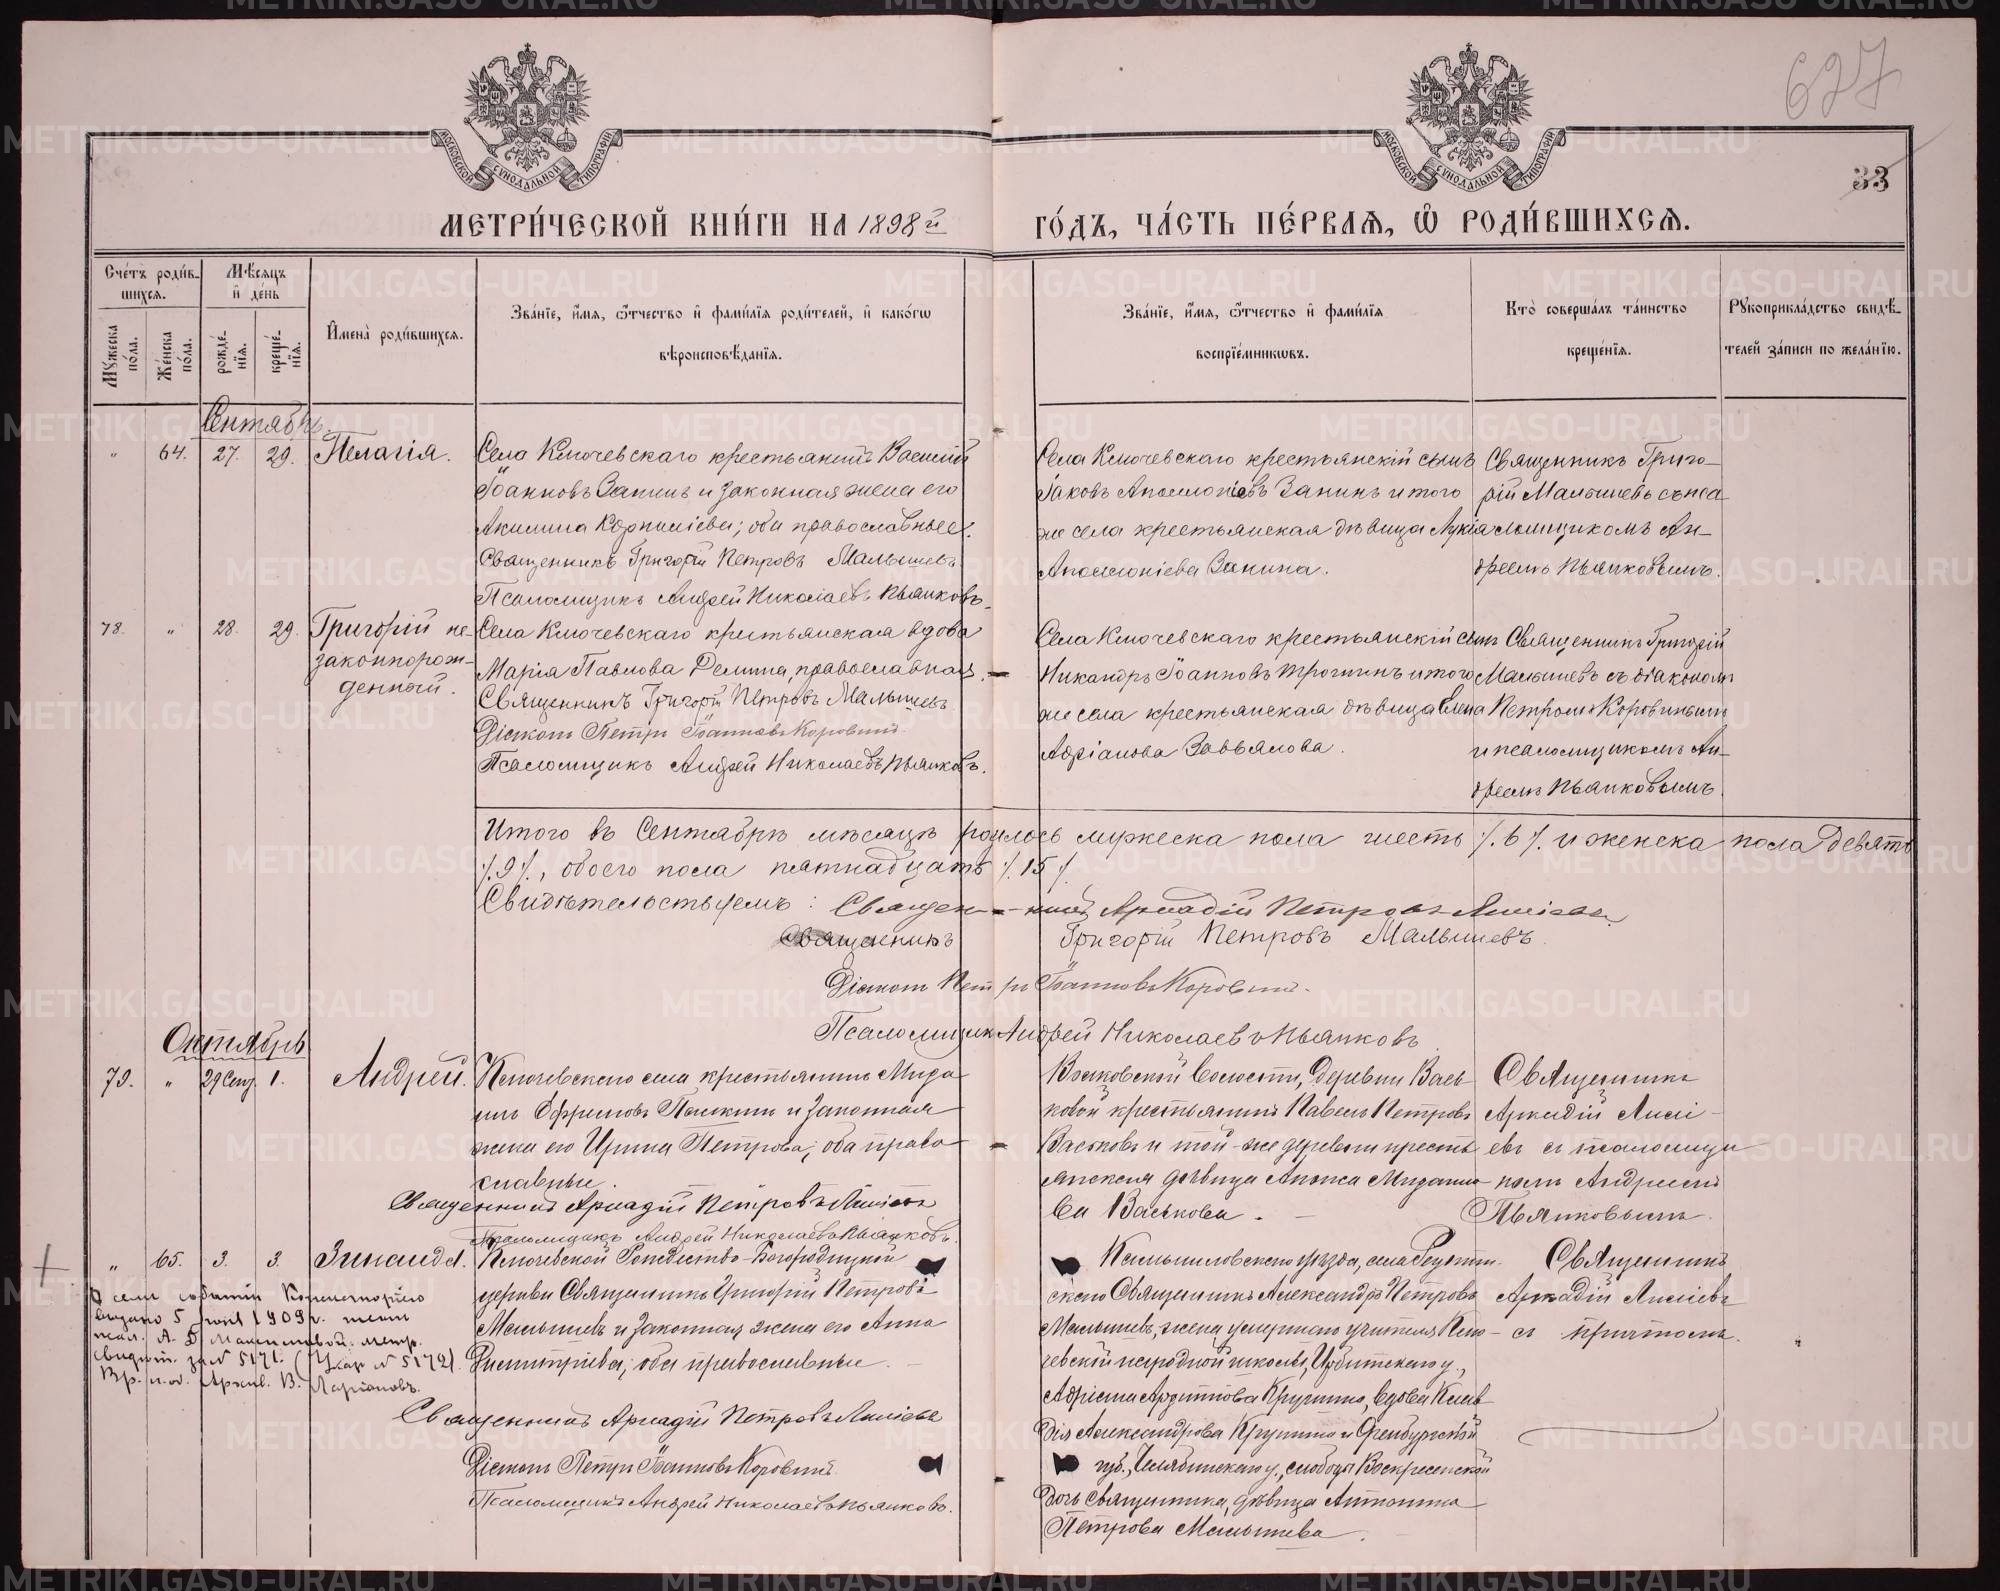 627
33
МОСКОВСКОЙ СѴНОДАЛЬНОЙ ТИПОГРАФІИ
МОСКОВСКОЙ СѴНОДАЛЬНОЙ ТИПОГРАФІИ
МЕТРИ́ЧЕСКОЙ КНИ́ГИ НА 1898й
ГО́ДЪ, ЧА́СТЬ ПЕ́РВАѦ, Ѡ РОДИ́ВШИХСѦ.
Сче́тъ роди́в-
шихсѧ.
Мѣ́сѧцъ
и҆ де́нь
И҆мена̀ роди́вшихсѧ.
Зва́нїе, и҆́мѧ, ѻ҆́тчество и҆ фами́лїѧ роди́телей, и҆ како́гѡ
вѣроисповѣ́данїѧ.
Зва́нїе, и҆́мѧ, ѻ҆́тчество и҆ фами́лїѧ
воспрїе́мникѡвъ.
Кто̀ соверша́лъ та́инство
креще́нїѧ.
Рꙋкоприкла́дство свидѣ́-
телей за́писи по жела́нїю.
Мꙋ́жеска
по́ла.
Же́нска
по́ла.
рожде́-
нїѧ.
креще́-
нїѧ.
Сентябрь.
" 64. 27. 29. Пелагія.
Села Ключевскаго крестьянинъ Василій
Іоанновъ Занинъ и законная жена его
Акилина Корниліева; оба православные.
Священникъ Григорій Петровъ Малышевъ
Псаломщикъ Андрей Николаевъ Пьянковъ.
Села Ключевскаго крестьянскій сынъ
Іаковъ Аполлоніевъ Занинъ и того
же села крестьянская дѣвица Лукія
Аполлоніева Занина.
Священникъ Григо-
рій Малышевъ съ пса-
ломщикомъ Ан-
дреемъ Пьянковымъ.
78. " 28. 29. Григорій не-
законнорож-
денный.
Села Ключевскаго крестьянская вдова
Марія Павлова Демина, православная.
Священникъ Григорій Петровъ Малышевъ
Діаконъ Петръ Іоанновъ Коровинъ
Псаломщикъ Андрей Николаевъ Пьянковъ.
Села Ключевскаго крестьянскій сынъ
Никандръ Іоанновъ Трошинъ и того
же села крестьянская дѣвица Елена
Адріанова Завьялова.
Священникъ Григорій
Малышевъ съ діакономъ
Петромъ Коровинымъ
и псаломщикомъ Ан-
дреемъ Пьянковымъ.
Итого въ Сентябрѣ мѣсяцѣ родилось мужеска пола шесть /.6/. и женска пола девять
/.9/., обоего пола пятнадцать /.15/.
Свидѣтельствуемъ: Священникъ Аркадій Петровъ Лисіевъ
Священникъ Григорій Петровъ Малышевъ.
Діаконъ Петръ Іоанновъ Коровинъ.
Псаломщикъ Андрей Николаевъ Пьянковъ
Октябрь
79. " 29 Сент. 1. Андрей.
Ключевскаго села крестьянинъ Миха-
илъ Ефимовъ и законная
жена его Ирина Петрова; оба право-
славные.
Священникъ Аркадій Петровъ Лисіевъ
Псаломщикъ Андрей Николаевъ Пьянковъ.
волости, деревни Вась-
ковой крестьянинъ Павелъ Петровъ
Васьковъ и той-же деревни кресть-
янская дѣвица Михаило-
ва Васькова.
Священникъ
Аркадій Лисі-
евъ съ псаломщи-
комъ Андреемъ
Пьянковымъ.
" 65. 3. 3. Зинаида.
Ключевской Рождество-Богородицкой
церкви Священникъ Григорій Петровъ
Малышевъ и законная жена его Анна
Димитріева; оба православные.
Священникъ Аркадій Петровъ Лисіевъ
Діаконъ Петръ Іоанновъ Коровинъ
Псаломщикъ Андрей Николаевъ Пьянковъ.
О семъ событіи Консисторіею
выдано 5 1909 г.
метр.
свидѣт. за № 5171. № 5172).
Архив. В. Ларіоновъ.
Камышловскаго уѣзда, села
скаго Священникъ Александръ Петровъ
Малышевъ, жена умершаго учителя Клю-
чевской народной школы, Ирбитскаго у.,
вдова Клав-
дія Александрова и Оренбургской
губ., Челябинскаго у., слободы Воскресенской
дочь священника, дѣвица Антонина
Петрова Малышева.
Священникъ
Аркадій Лисіевъ
съ причтомъ.
METRIKI.GASO-URAL.RU